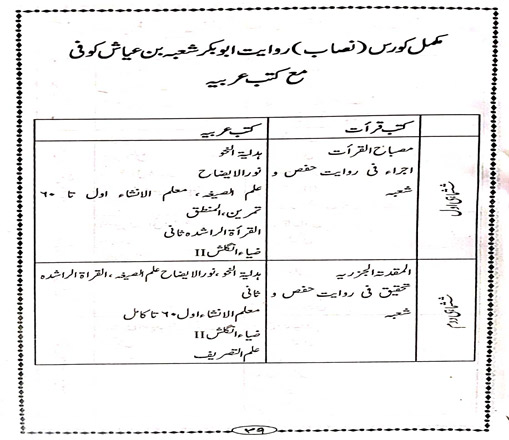 مکمل کورس (نصاب) روایت ابوبکر شعبہ بن عیاش کوفی
مع کتب عربیہ
کتب قرأت
کتب عربیہ
ششماہی اول
مصباح القرأت
اجراء فی روایت حفص و
شعبہ
ہدایۃ النحو
نور الایضاح
علم الصیغہ، معلم الانشاء اول تا ۶۰
تمرین، المنطق
القرأۃ الراشدہ ثانی
ضیاء انگلش II
ششماہی دوم
المقدمۃ الجزریہ
تحقیق فی روایت حفص و
شعبہ
ہدایۃ النحو، نور الایضاح علم الصیغہ، القراۃ الراشدہ
ثانی
معلم الانشاء اول ۶۰ تا کامل
ضیاء انگلش II
علم التصریف
۳۹